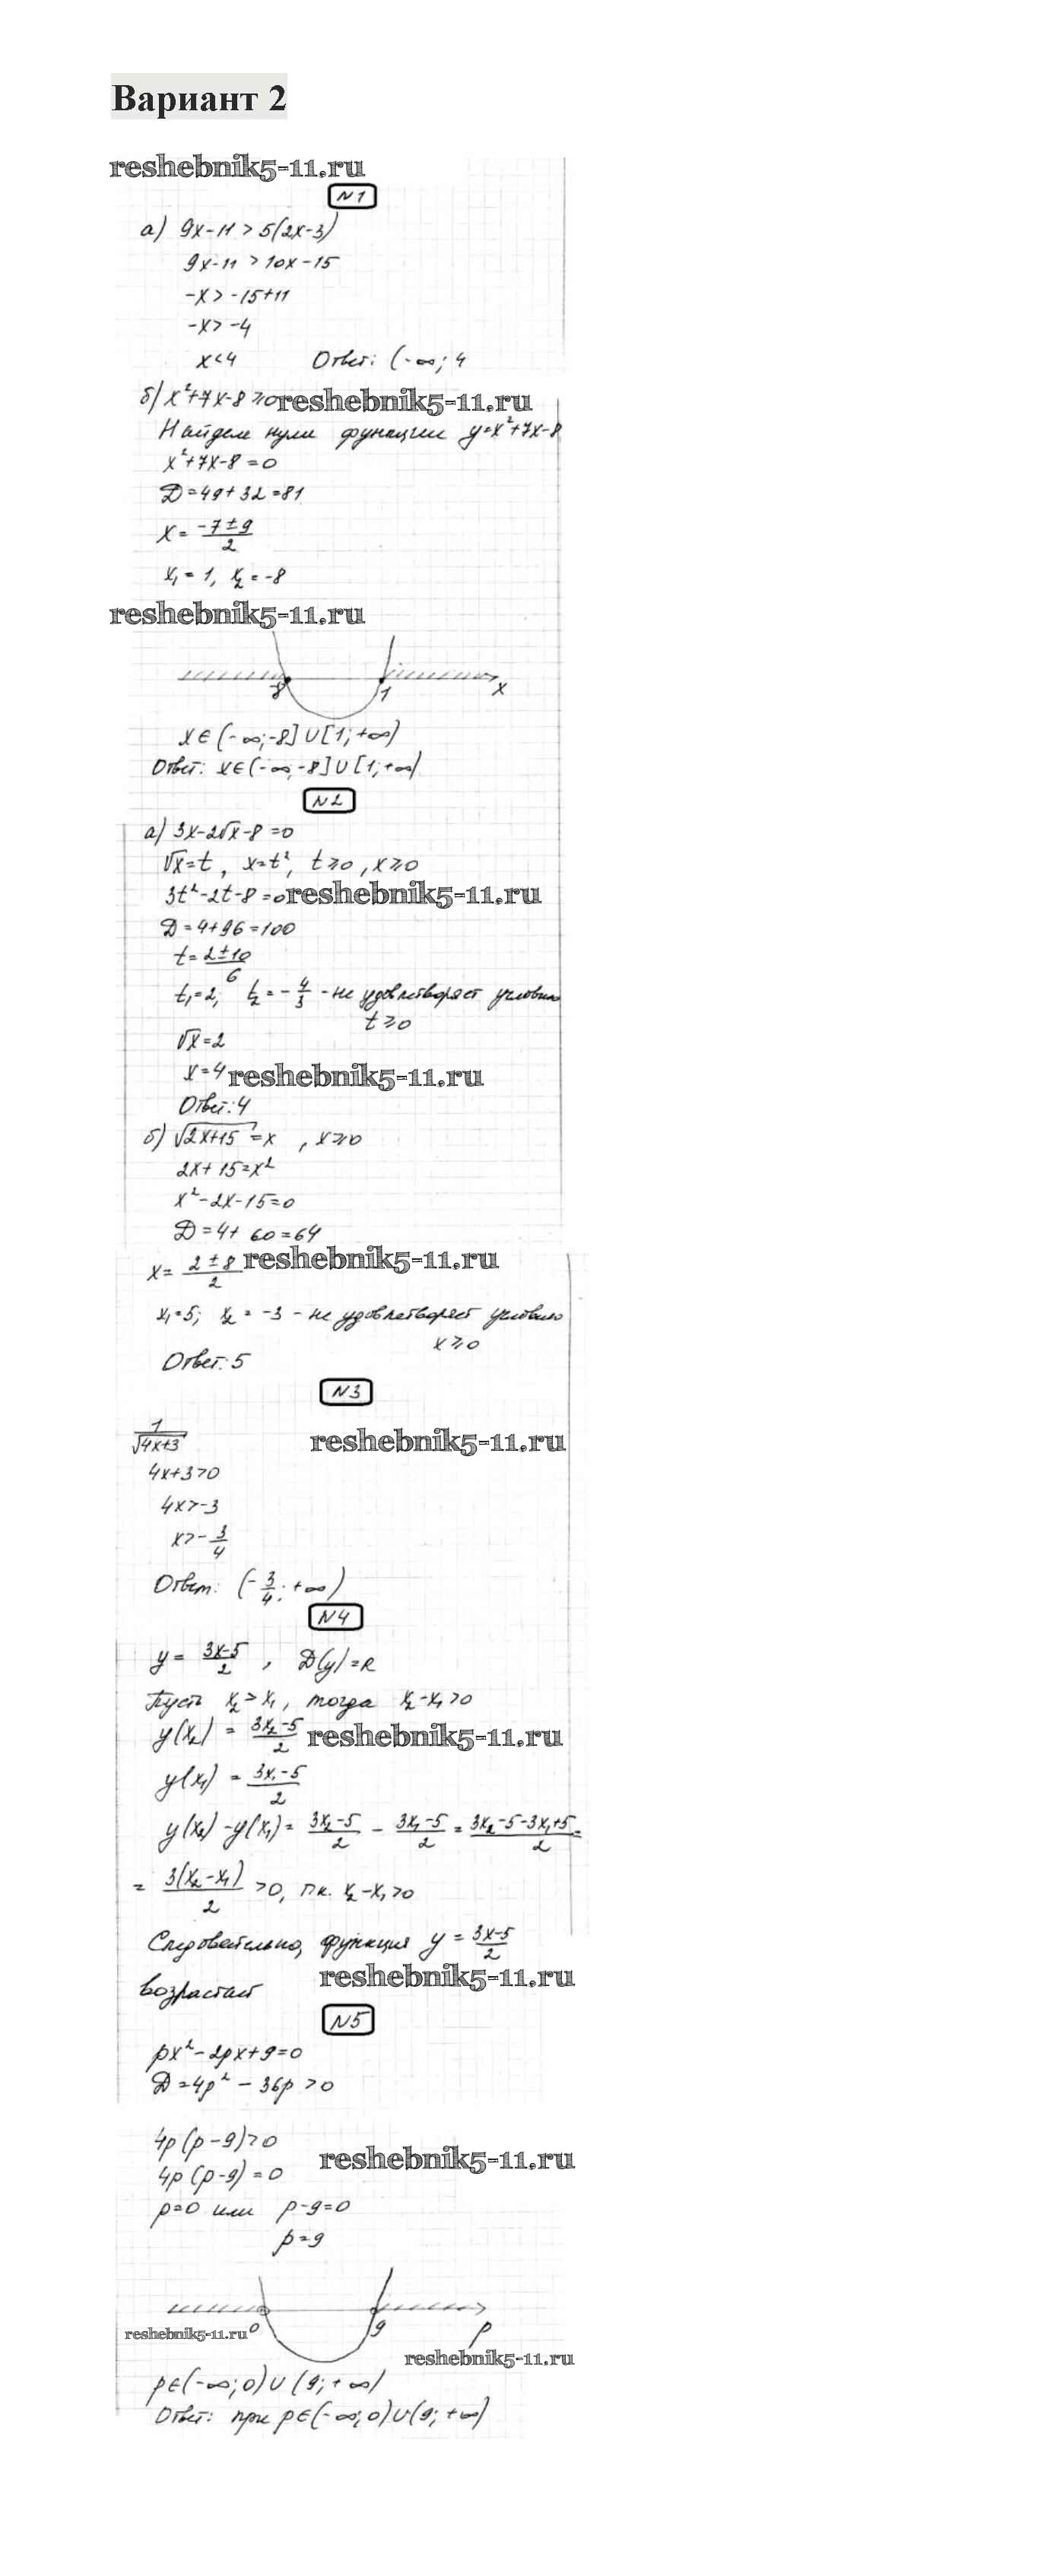 Вариант 2
reshebnik5-11.ru
N1
а) 9x-11 > 5(2x-3)
9x-11 > 10x-15
-x > -15+11
-x > -4
x < 4 Ответ: (-∞; 4
б) x²+7x-8 ≥0 reshebnik5-11.ru
Найдем нули функции y=x²+7x-8
x²+7x-8=0
D=49+32=81
x = (-7±9)/2
x₁ = 1, x₂ = -8
reshebnik5-11.ru
-8 1 x
x∈(-∞;-8]∪[1;+∞)
Ответ: x∈(-∞;-8]∪[1;+∞)
N2
а) 3x-2√x-8=0
√x=t, x=t², t≥0, x≥0
3t²-2t-8=0 reshebnik5-11.ru
D=4+96=100
t = (2±10)/6
t₁=2; t₂ = -4/3 - не удовлетворяет условию
t≥0
√x=2
x=4 reshebnik5-11.ru
Ответ: 4
б) √(2x+15) = x , x≥0
2x+15=x²
x²-2x-15=0
D=4+60=64
x = (2±8)/2 reshebnik5-11.ru
x₁=5; x₂ = -3 - не удовлетворяет условию
x≥0
Ответ: 5
N3
1/√(4x+3) reshebnik5-11.ru
4x+3>0
4x>-3
x>-3/4
Ответ: (-3/4; +∞)
N4
y = (3x-5)/2 , D(y)=R
Пусть x₂>x₁, тогда x₂-x₁>0
y(x₂) = (3x₂-5)/2 reshebnik5-11.ru
y(x₁) = (3x₁-5)/2
y(x₂)-y(x₁) = (3x₂-5)/2 - (3x₁-5)/2 = (3x₂-5-3x₁+5)/2 =
= 3(x₂-x₁)/2 >0, т.к. x₂-x₁>0
Следовательно, функция y = (3x-5)/2
возрастает reshebnik5-11.ru
N5
px²-2px+9=0
D=4p²-36p>0
4p(p-9)>0
reshebnik5-11.ru
4p(p-9)=0
p=0 или p-9=0
p=9
0 9 p
reshebnik5-11.ru
reshebnik5-11.ru
p∈(-∞;0)∪(9;+∞)
Ответ: при p∈(-∞;0)∪(9;+∞)